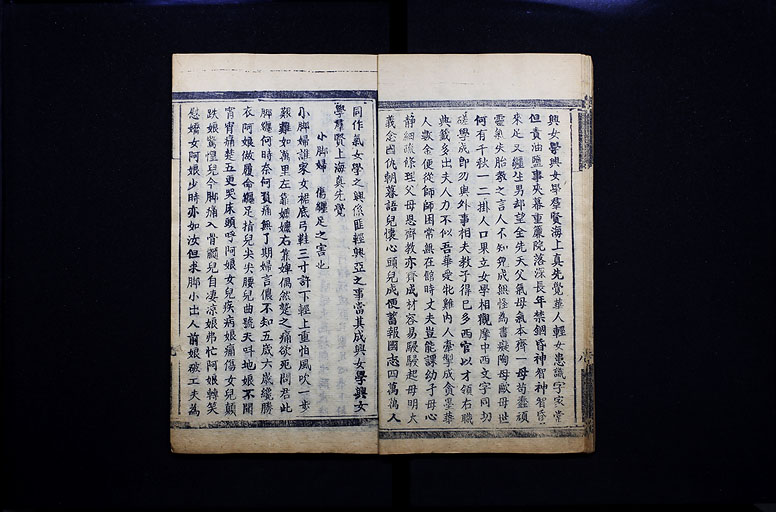 興女學興女學羣賢海上真先覺華人輕女患識字家常
但責油鹽事夾幕重簾院落深長年禁錮昏神智神智昏
來足又纏生男却望全先天父氣母氣本齊一母苟蠢頑
靈氣失胎教之言人不知兒成無怪為書癡陶母歐母世
何有千秋一二掛人口果立女學相觀摩中西文字同切
磋學成即勿與外事相夫教子得已多西官以才領右職
典籤多出夫人力不似吾華愛牝雞內人牽掣成貪墨華
人數金便從師師困常無在館時丈夫豈能課幼子母心
靜細疏條理父母恩齊教亦齊成材容易駸駸起母明大
義念國仇朝暮語兒懷心頭兒成便蓄報國志四萬萬人
同作氣女學之興係匪輕興亞之事當其成興女學興女
學羣賢上海真先覺
小脚婦 傷纏足之害也
小脚婦誰家女裙底弓鞋三寸許下輕上重怕風吹一步
艱難如萬里左靠嬤嬤右靠婢偶然蹙之痛欲死問君此
脚纏何時奈何負痛無了期婦言儂不知五歲六歲纔勝
衣阿娘做履命纏足指兒尖尖腰兒曲號天呌地娘不聞
宵宵痛楚五更哭床頭呼阿娘女兒疾病娘痛傷女兒顛
跌娘驚惶兒今脚痛入骨髓兒自凄凉娘弗忙阿娘轉笑
慰嬌女阿娘少時亦如汝但求脚小出人前娘破工夫為